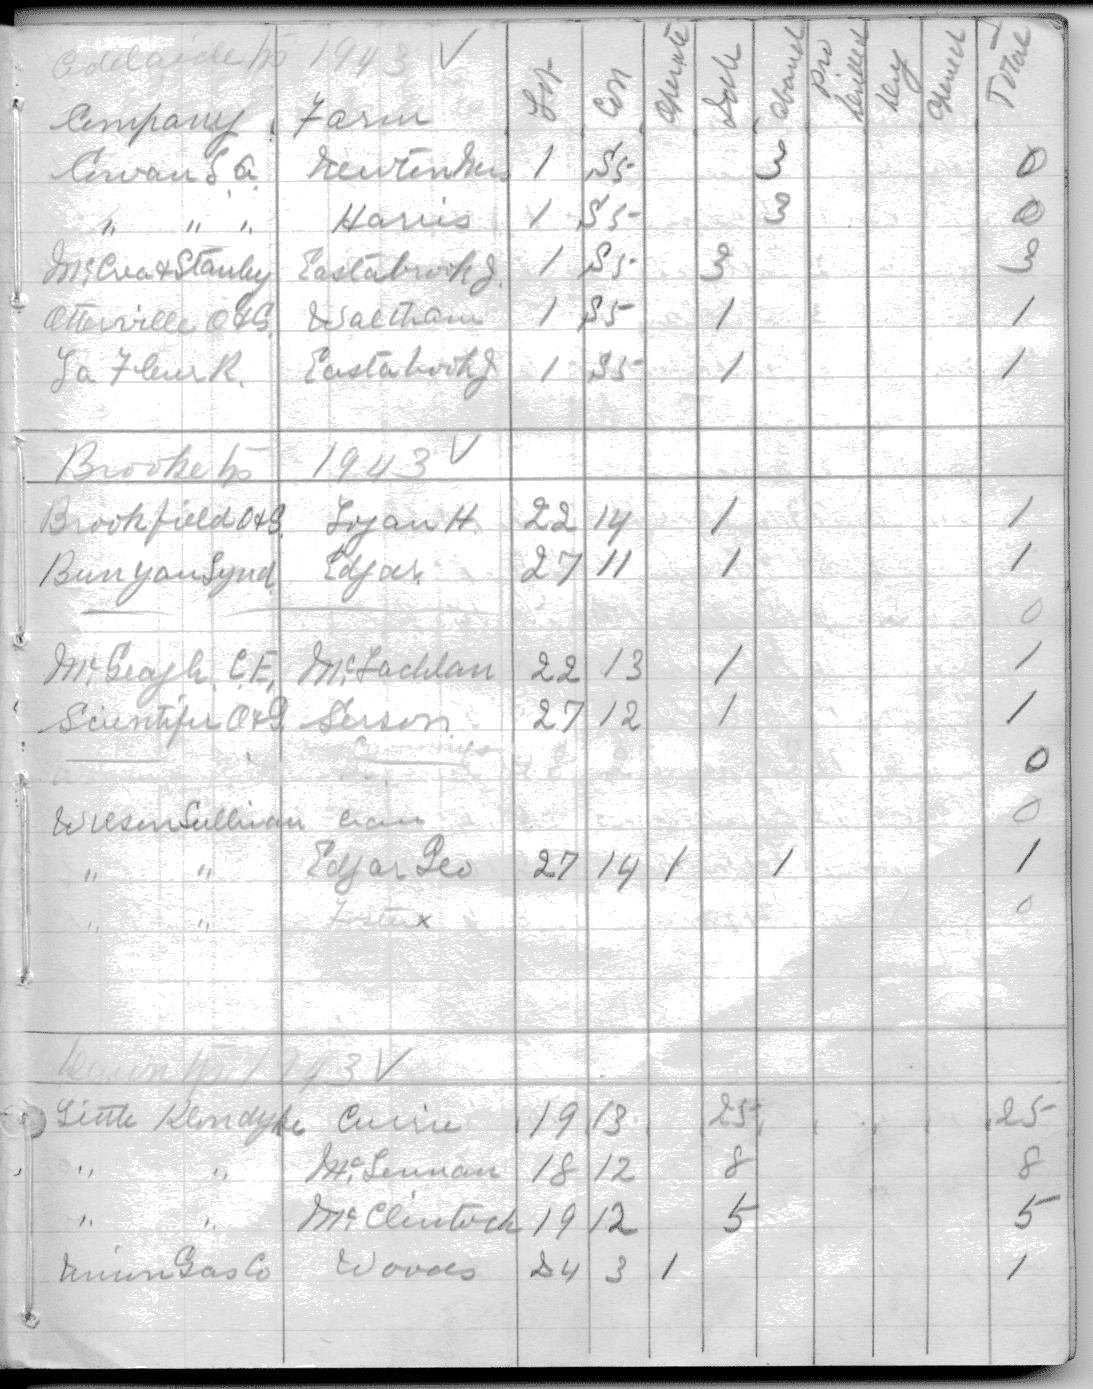 Adelaide tp 1943 ✓
Company Farm Lot Con Operate Idle Aband Pro Drilled Dry Opened Total
Cowan S. G. Newton Wm 1 S5 3 0
" " " Harris 1 S5 3 0
McCrea & Stanley Eastabrook J. 1 S5 3 3
Otterville O & G. Waltham 1 S5 1 1
La Fleur R. Eastabrook J 1 S5 1 1
Brooke tp 1943 ✓
Brookfield O & G. Logan H. 22 14 1 1
Bunyan Synd Edgar 27 11 1 1
0
McGeagh. C. E. McLachlan 22 13 1 1
Scientific O & G Serson 27 12 1 1
Cummings
0
Wilson Sullivan 0
" " Edgar Geo 27 14 1 1 1
" " 0
Dawn tp 1943 ✓
Little Klondyke Currie 19 13 25 25
" " McLennan 18 12 8 8
" " McClintock 19 12 5 5
Union Gas Co Woods 24 3 1 1